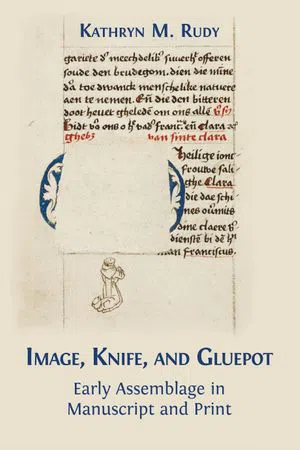 KATHRYN M. RUDY
gariete dz meechdelikz suverhz offeren
soude den brudegom. dien die mine
dz toe dwanck menschelike natuere
aen te nemen. En die den bitteren
doot hevet gheledē om ons allē
Bidt vōr ons o hz vadz francz. en clara
ghebz van sinte clara
Heilige ionc
frouwe sali
ghe Clara
die dae schi
nes
dine claere
dienste bi dē
man Franciscus.
IMAGE, KNIFE, AND GLUEPOT
Early Assemblage in
Manuscript and Print